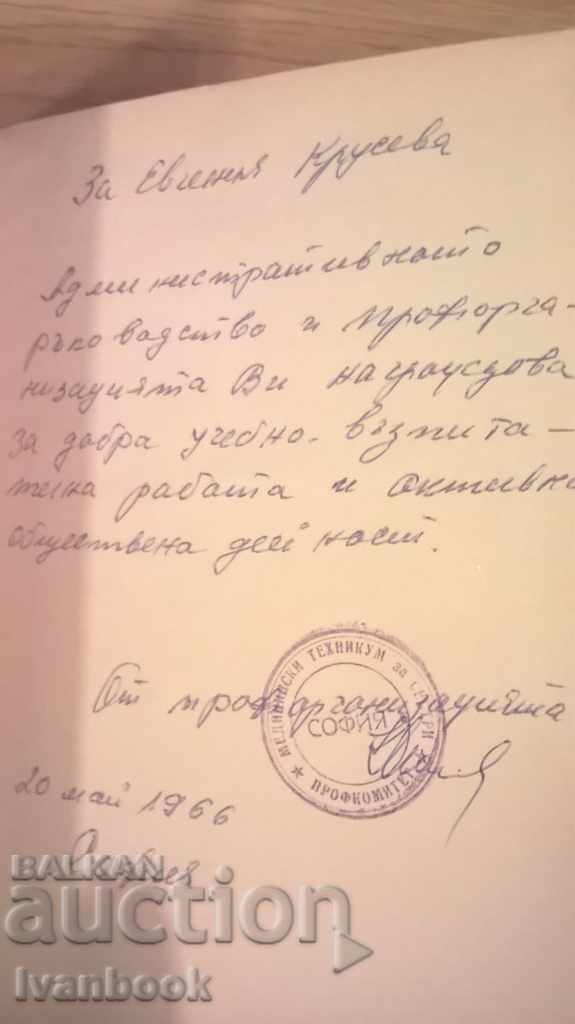 За Евгения Крусева
Административното
ръководство и профорга-
низацията Ви награждова
за добра учебно-възпита-
телна работа и активна
обществена дейност.
От профорганизацията
МЕДИЦИНСКИ ТЕХНИКУМ за СЕСТРИ
СОФИЯ
★ ПРОФКОМИТЕТ ★
20 май 1966
София
BALKAN
auction
Ivanbook